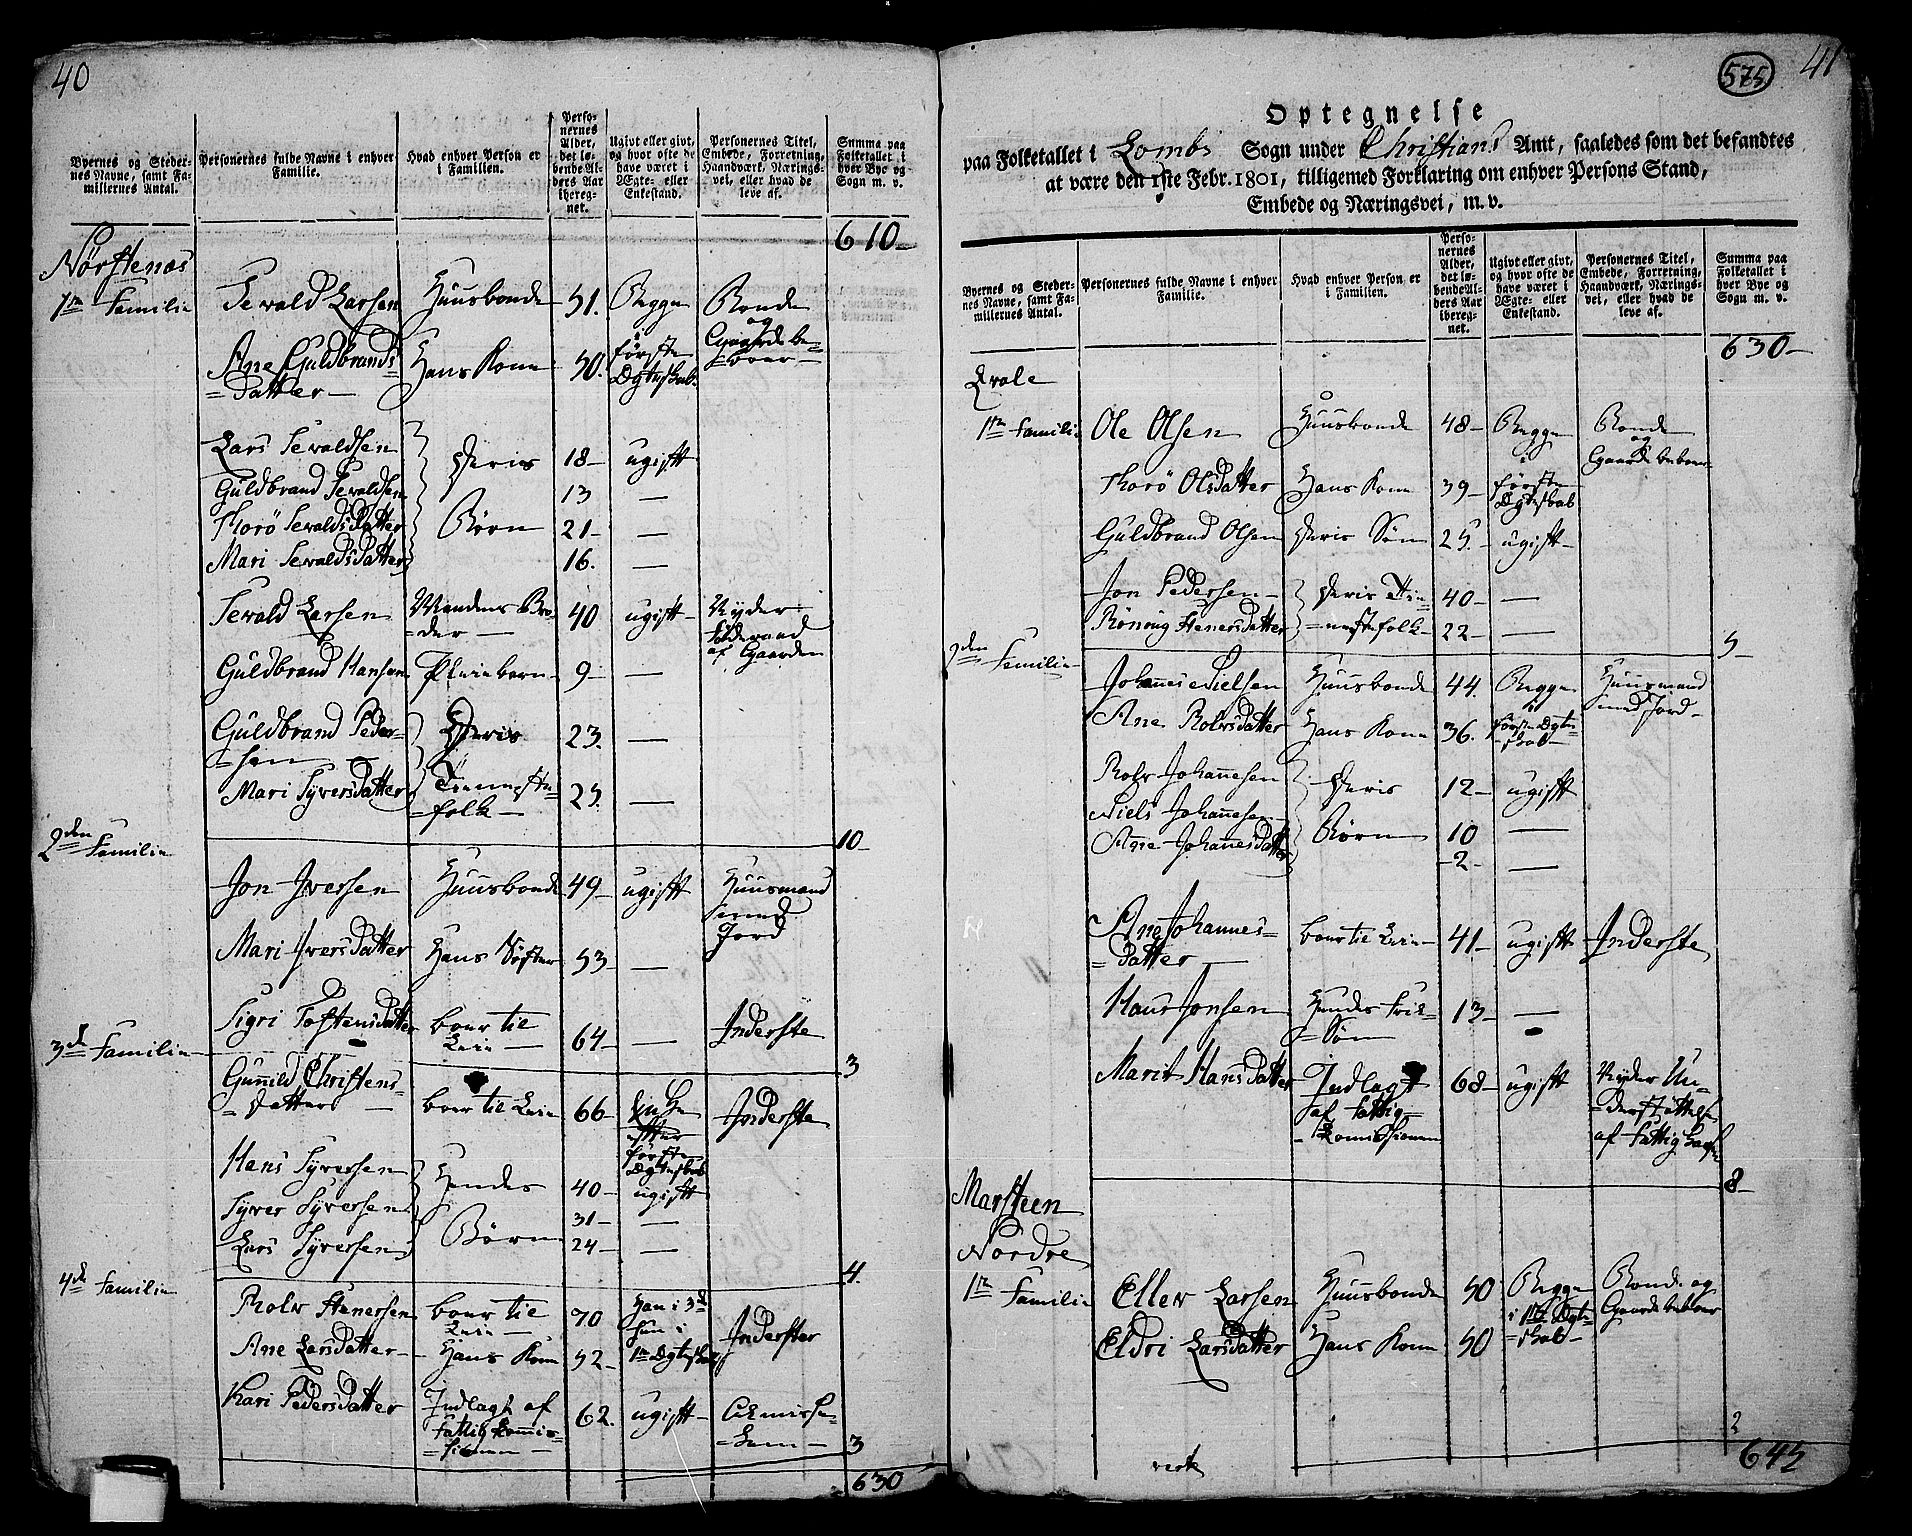 40
Byernes og Steder-
nes Navne, samt Fa-
milllernes Antal.
Personernes fulde Navne i enhver
Familie.
Hvad enhver Person er
i Familien.
Perso-
nernes
Alder,
det lø-
bende Al-
ders Aar
iberegnet.
Ugivt eller givt,
og hvor ofte de
have været i
Ægte- eller
Enkestand.
Personernes Titel,
Embede, Forretning,
Haandværk, Nærings-
vei, eller hvad de
leve af.
Summa paa
Folketallet i
hver Bye og
Sogn m. v.
610-
Nørstenæs
1te Familie
Sewald Larsen Huusbonde 51. Begge Bonde
og
Ane Guldbrands=
=Datter- Hans Kone 50. i første Ægteskab. Gaardbe=
=boer-
Lars Sewaldsen Deris 18- ugift
Guldbrand Sewaldsen 13 -
Thorø SewaldsDatter Børn 21- -
Mari SewaldsDatter 16. -
Sewald Larsen Mandens Bro=
=der- 40 ugift- Nyder
Føderaad
af Gaarden
Guldbrand Hansen Pleiebarn- 9- -
Guldbrand Peder=
=sen- Deris 23. -
Mari SyversDatter Tienniste=
=folk- 25. -
10
2den Familie
Jon Iversen Huusbonde 49- ugift Huusmand
med
Jord
Mari IversDatter Hans Søster 53- -
Sigri TostensDatter boer til
Leie- 64- - Inderste
3
3de Familie
Gunild Christens=
=datter- boer til Leie 66- Enke
efter
første
Ægteskab Inderste
Hans Syversen Hendes 40- ugift
Syver Syversen Børn 31- -
Lars Syversen 24- -
4.
4de Familie
Rolv Stenersen boer til
Leie- 70 Han i 3de
hun i
1te Ægteskab Inderster
Ane LarsDatter- Hans Kone 52-
Kari PedersDatter Indlagt af
Fattig Commis=
=sionen- 62. ugift- Almisse=
=Lem-
3
630
575
41
Optegnelse
paa Folketallet i Lombs Sogn under Christians Amt, saaledes som det befandtes
at være den 1ste Febr. 1801, tilligemed Forklaring om enhver Persons Stand,
Embede og Næringsvei, m. v.
Byernes og Steder-
nes Navne, samt Fa-
millernes Antal.
Personernes fulde Navne i enhver
Familie.
Hvad enhver Person er
i Familien.
Perso-
nernes
Alder,
det lø-
bende Al-
ders Aar
iberegnet.
Ugivt eller givt,
og hvor ofte de
have været i
Ægte- eller
Enkestand.
Personernes Titel,
Embede, Forretning,
Haandværk, Nærings-
vei, eller hvad de
leve af.
Summa paa
Folketallet i
hver Bye og
Sogn m. v.
630-
Qvale
1te Familie Ole Olsen Huusbonde 48- Begge
i
første
Ægteskab Bonde
og
Gaardbeboer
Thorø OlsDatter Hans Kone 39-
Guldbrand Olsen Deris Søn 25.- ugift-
Jon Pedersen- Deris Tie= 40- -
Rønnug StenersDatter =nistefolk- 22- -
5-
2den Familie-
Johanes Nielsen Huusbonde 44. Begge
i
første Ægte=
=skab- Huusmand
med Jord-
Ane RolvsDatter Hans Kone 36.
Rolv Johanesen Deris 12- ugift
Niels Johanesen- Børn 10 -
Ane JohanesDatter 2- -
Ane Johannes=
=Datter- boer til Leie- 41- ugift Inderste
Hans Jonsen Hendes
=Søn 13- -
Marit HansDatter Indlagt
af Fattig=
=Comissionen 68- ugift Nyder Un=
=derstøttelse
af Fattig
8-
Marsteen
Nordre
1te Familie Ellev Larsen Huusbonde 50 Begge
i 1te Ægte=
=skab- Bonde og
Gaardbeboer
Eldri LarsDatter Hans Kone 50
2
645